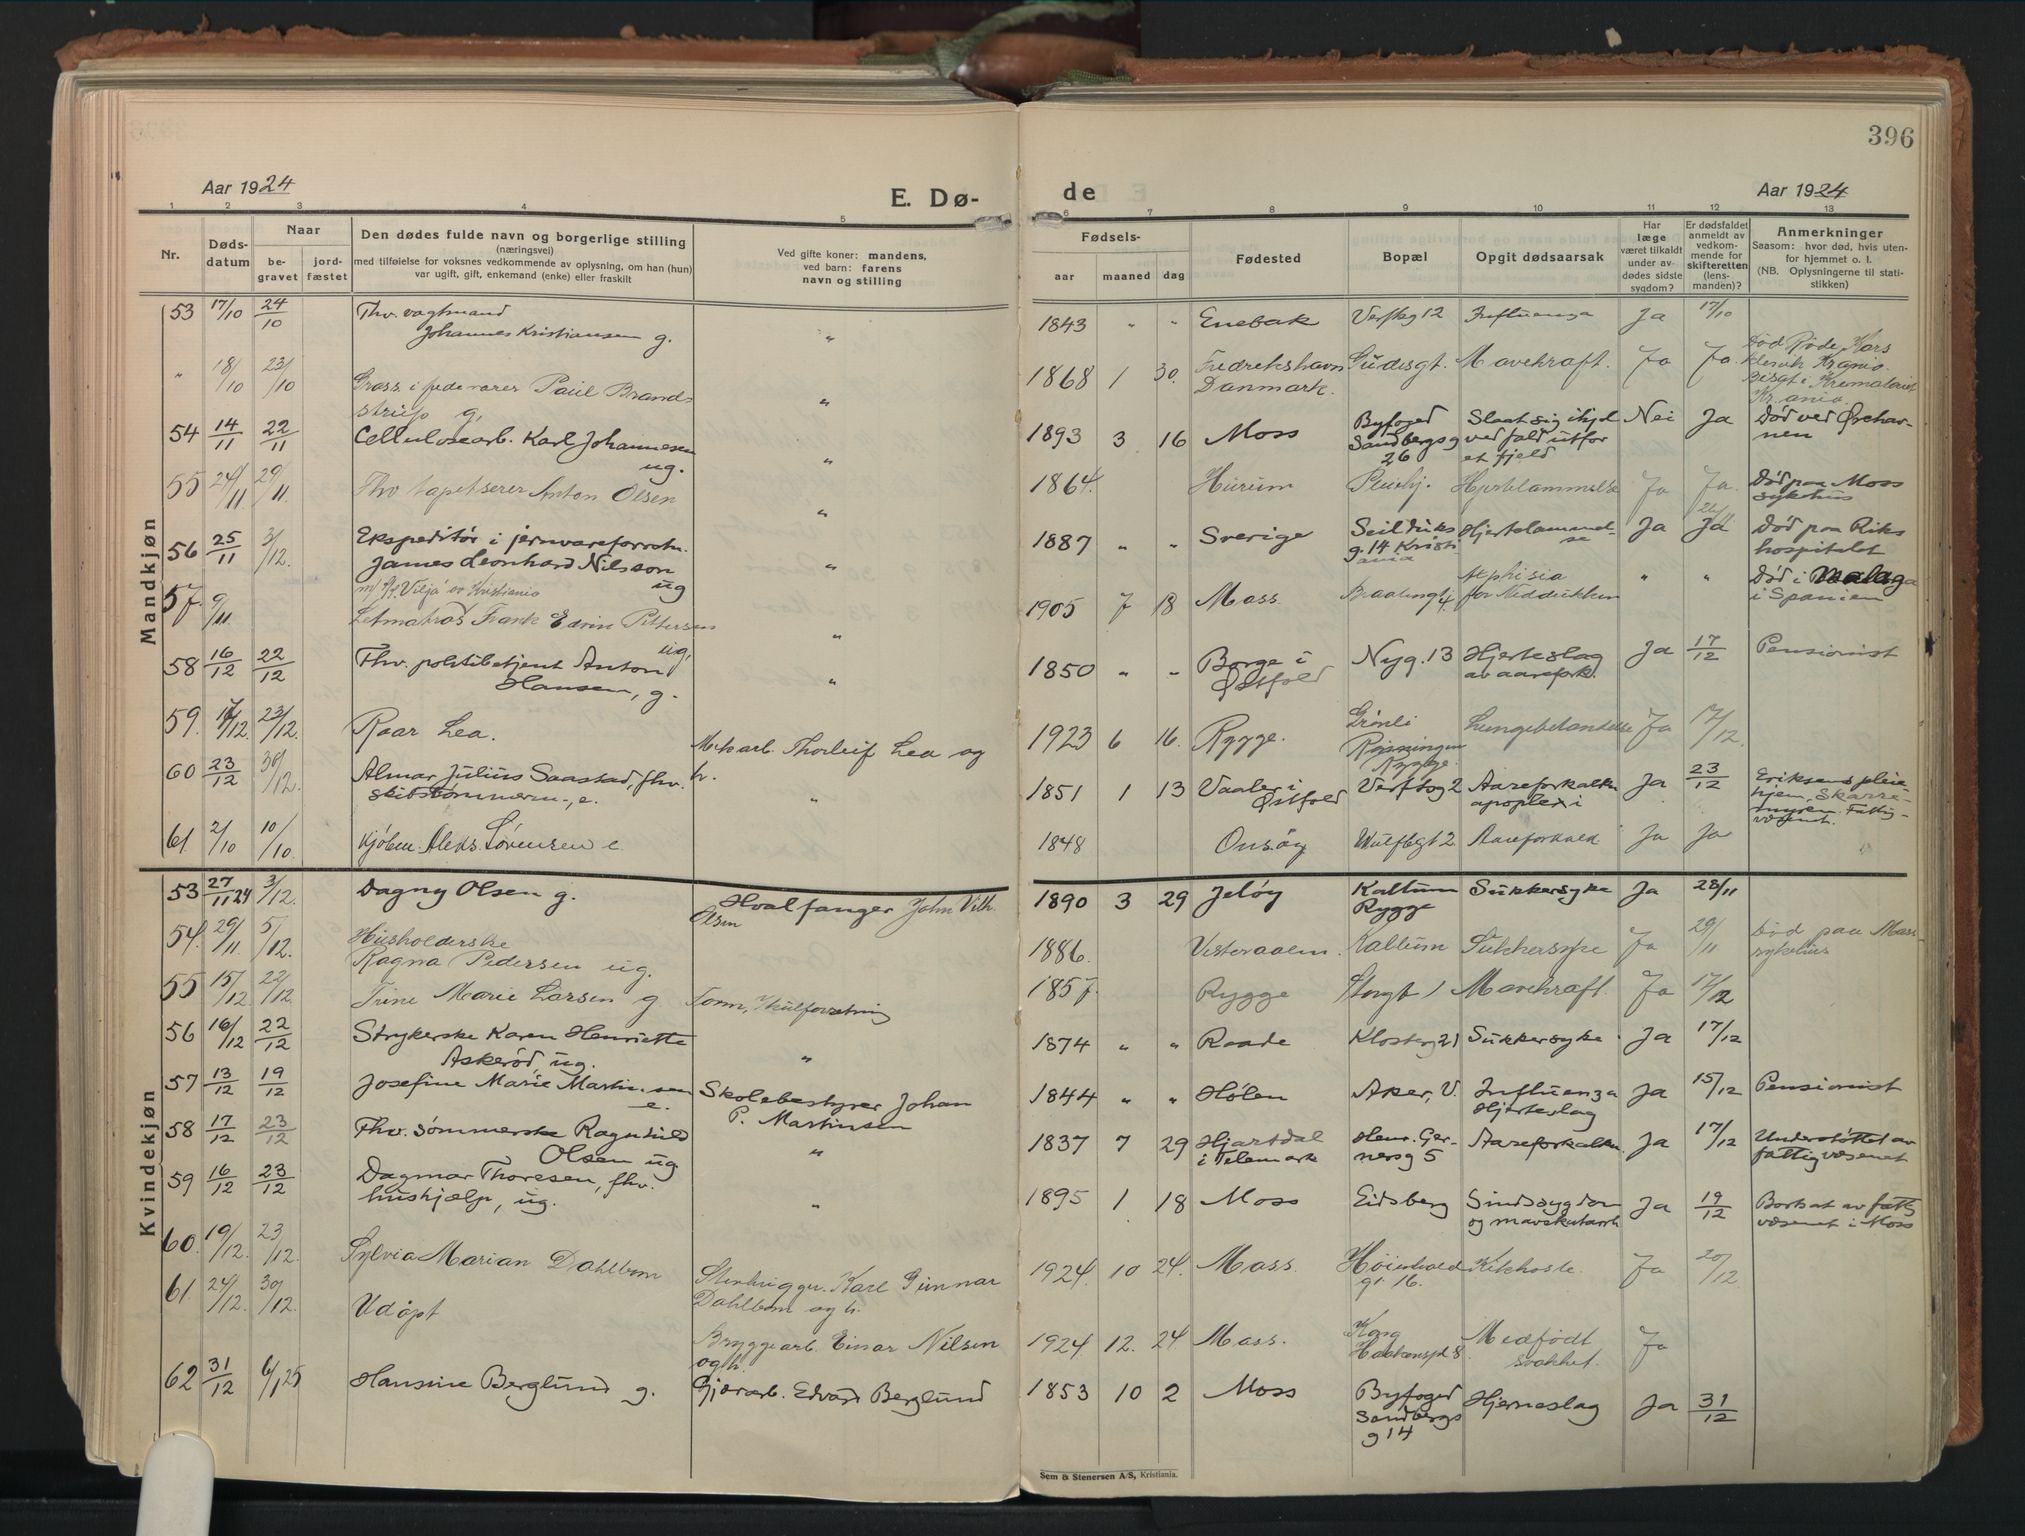 396
Aar 1924
E. Dø-
de
Aar 1924
1 2 3 4 5 6 7 8 9 10 11 12 13
Nr.
Døds-
datum
Naar
be-
gravet
jord-
fæstet
Den dødes fulde navn og borgerlige stilling
(næringsvei)
med tilføielse for voksnes vedkommende av oplysning, om han (hun)
var ugift, gift, enkemand (enke) eller fraskilt
Ved gifte koner: mandens,
ved barn: farens
navn og stilling
Fødsels-
aar
maaned
dag
Fødested
Bopæl
Opgit dødsaarsak
Har
læge
været tilkaldt
under av-
dødes sidste
sygdom?
Er dødsfaldet
anmeldt av
vedkom-
mende for
skifteretten
(lens-
manden)?
Anmerkninger
Saasom: hvor død, hvis uten-
for hjemmet o. l.
(NB. Oplysningerne til stati-
stikken)
Mandkjøn
53 17/10 24/10 Thv. vagtmand
Johannes Kristiansen g. "
1843 " " Enebak Verftsg 12 Influenza Ja 17/10
" 18/10 23/10 Gross. i federarer Paul Brand-
strup g. "
1868 1 30. Fredrikshavn
Danmark. Gudesgt. Mavekræft. Ja Ja. Død Røde Kors
klinik Kr.ania.
Bisat i Krematoriet
Kr.ania.
54 14/11 22/11 Cellulosearb. Karl Johannesen
ug. "
1893 3 16 Moss Byfoged
Sandbergs g
26 Slaat sig ihjel
ved fald utfor
et fjeld Nei Ja Død ved Ørehav-
nen
55 24/11 29/11. Thv tapetserer Anton Olsen "
1864. Hurum Pleiehj. Hjertelammelse Ja Ja. Død paa Moss
sykehus
56 25/11 3/12. Ekspeditør i jernvareforretn.
James Leonhard Nilsson
ug "
1887 " " Sverige Seilduks
g. 14 Kristi
ania Hjertelammel-
se Ja 26/11 Ja Død paa Riks
hospitalet
57. 9/11. m/s Vilja av Kristiania
Letmatros Frank Edvin Pettersen
ug. "
1905 7 18 Moss. Braatengt
4. for Neddukken " " Død i Malaga
i Spanien
58 16/12 22/12 Thv. politibetjent Anton
Hansen, g. "
1850 " " Borge i
Østfold Nyg. 13 Hjerteslag
av aarefork. Ja 17/12 Pensionist
59. 17/12. 23/12. Roar Lea. Mek arb. Thorleif Lea og
h.
1923 6 16. Rygge. Grønli
Rygge. Lungebetændelse Ja 17/12.
60 23/12 30/12. Almar Julius Saastad, fhv.
skibstømmerm., e. "
1851 1 13 Vaaler i
Østfold Verftsg 2 Aareforkalkn
apoplexi Ja 23/12 Eriksens pleie-
hjem, Skarre-
myren. Fattig-
væsenet.
61 2/10 10/10 Kjøbm. Aleks. Sørensen e.
1848 Onsøy Wulfsbgt 2. Aareforkalk. Ja Ja "
Kvindekjøn
53 27/11 24 3/12. Dagny Olsen g. Hvalfanger John Vilh.
Olsen
1890 3 29 Jeløy Kallum
Rygge Sukkersyke Ja 28/11
54. 29/11. 5/12. Husholderske
Ragna Pedersen ug.
1886. Vesteraalen. Kallum Sukkersyke Ja 29/11 Død paa Moss
sykehus
55 15/12 22/12. Trine Marie Larsen g. Form. Kulforretning
1857. Rygge Storgt 1 Mavekræft. Ja 17/12
56 16/12 22/12 Strykerske Karen Henriette
Askerød, ug. "
1874 " " Raade Klosterg 21 Sukkersyke Ja 17/12
57 13/12 19/12 Josefine Marie Martinsen
e. Skolebestyrer Johan
P. Martinsen
1844 " " Hølen Aker, V. Influenza
Hjerteslag Ja 15/12 Pensionist
58 17/12 23/12 Thv. sømmerske Ragnhild
Olsen ug "
1837 7 29 Hjartdal
i Telemark Henr. Ger-
nersg 5 Aareforkalkn. Ja 17/12 Understøttet av
fattigvæsenet
59 16/12 23/12 Dagmar Thoresen, fhv.
hushjælp, ug. "
1895 1 18 Moss Eidsberg Sindssygdom
og mavekatarrh Ja 19/12 Bortsat av fattig
væsenet i Moss
60. 19/12. 23/12. Sylvia Marian Dahlbom Stenhugger. Karl Gunnar
Dahlbom og h.
1924. 10 24. Moss. Høienhald
gt. 16. Kikhoste. Ja 20/12.
61 24/12. 30/12. Udøpt Bryggearb. Einar Nilsen
og h.
1924 12. 24 Moss. Kong
Haakonspl. 8. Medfødt
svakhet. Ja
62 31/12 6/1 25 Hansine Berglund g. Gjærarb. Edvard Berglund
1853 10 2 Moss Byfoged
Sandbergs
g 14 Hjerneslag Ja 31/12
Sem & Stenersen A/S, Kristiania.